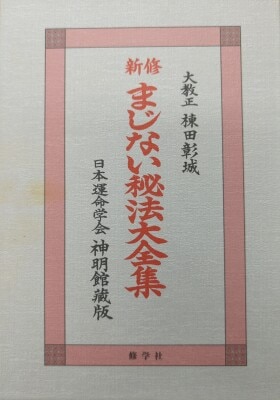 大教正 棟田彰城
新修
まじない秘法大全集
日本運命学会 神明館蔵版
修学社